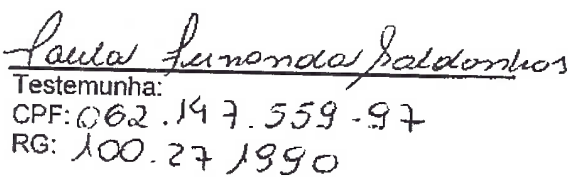 Paula Fernanda Saldanhas
Testemunha:
CPF: 062.147.559-97
RG: 100.27 1990